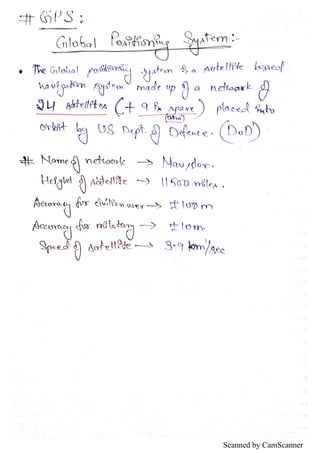 # GPS :
Global Positioning System :-
• The Global positioning system is a satellite based
navigation system made up of a network of
24 satellites (+ 9 in spare) placed into
orbit by US Dept. of Defence. (DoD)
# Name of network → Navstar.
Height of satellite → 11500 miles.
Accuracy for civilian user → ± 100 m
Accuracy for military → ± 10 m.
Speed of satellite → 3.9 km/sec
Scanned by CamScanner